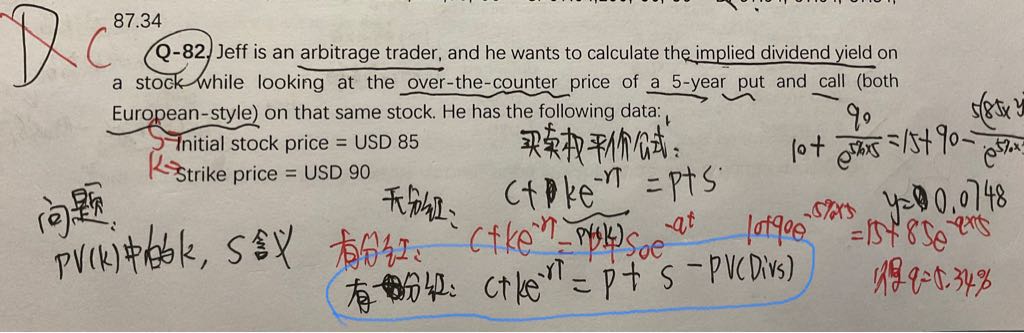 87.34
D C
Q-82 Jeff is an arbitrage trader, and he wants to calculate the implied dividend yield on
a stock while looking at the over-the-counter price of a 5-year put and call (both
European-style) on that same stock. He has the following data:
S→ Initial stock price = USD 85
K→ Strike price = USD 90
买卖权平价公式:
10+ 90/e^5%×5 = 15+90-
y=0.0748
无分红: c+ke^-rT = p+s
PV(k)
有分红: c+ke^-rt = p+s₀e^-qt
10+90e^-5%×5 = 15+85e^-q×5
得q=5.34%
有分红: c+ke^-rT = p+ s -PV(Divs)
问题:
PV(k)中的k, S含义